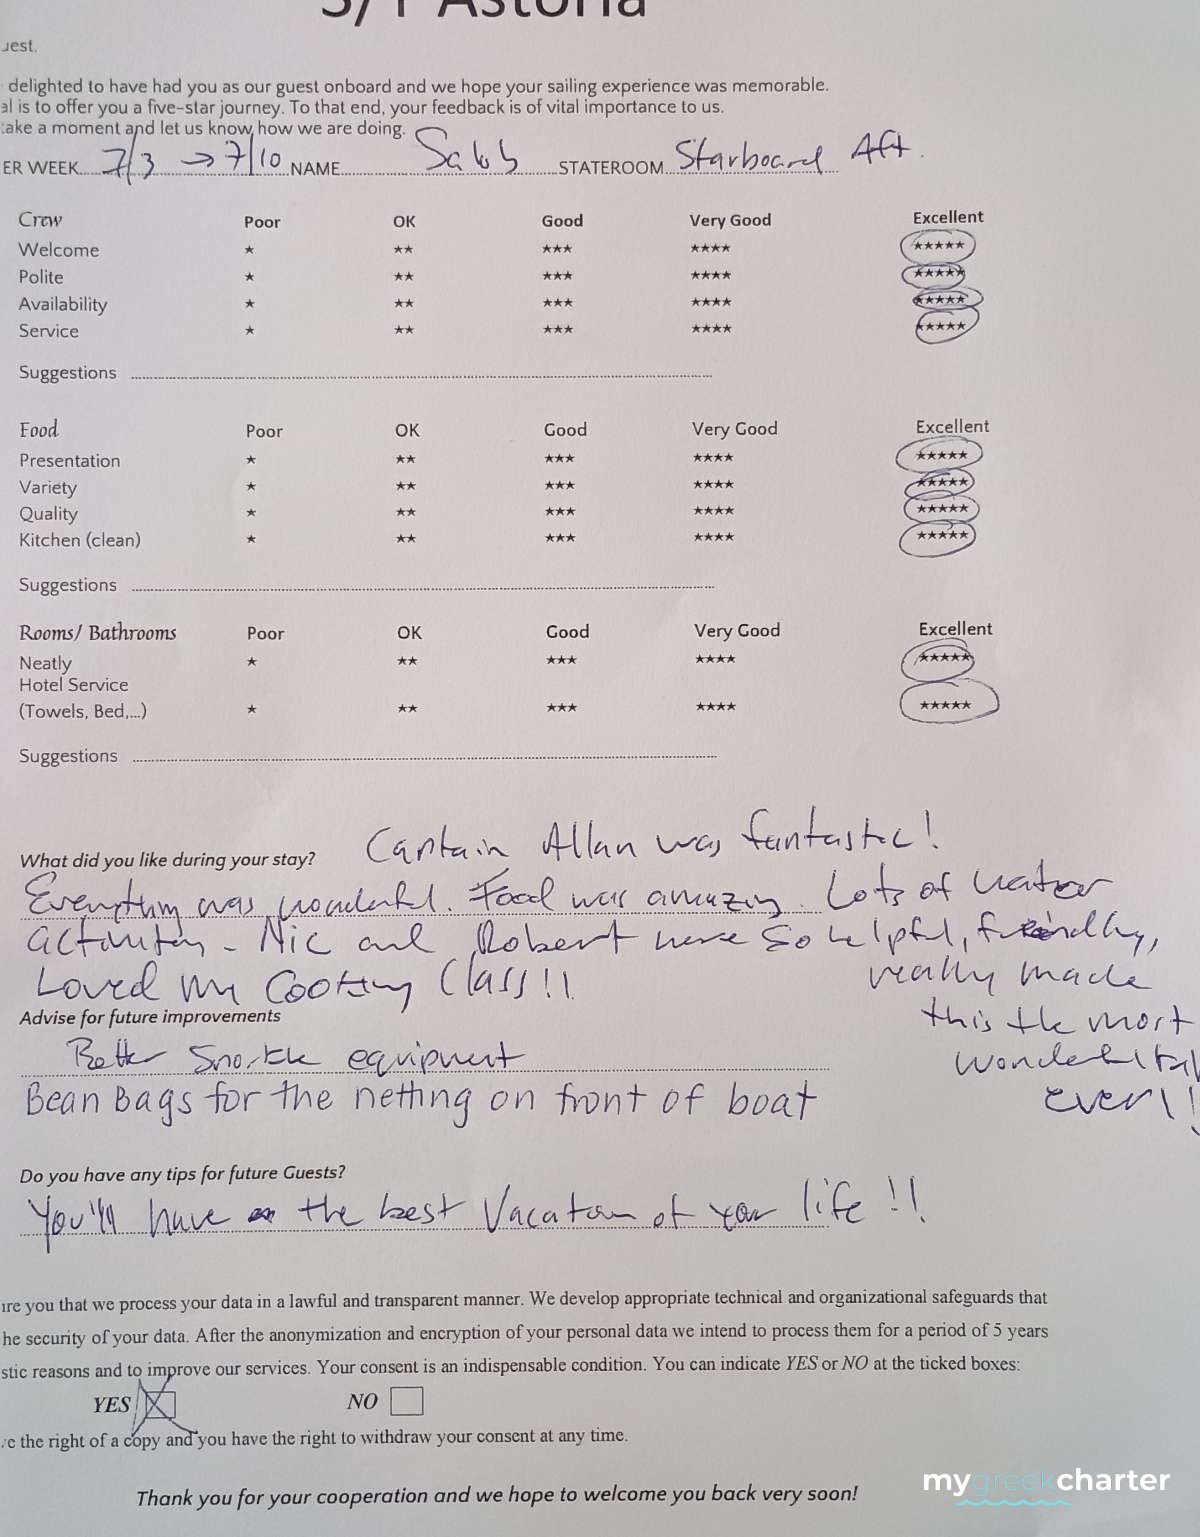 S/Y Astoria
uest.
delighted to have had you as our guest onboard and we hope your sailing experience was memorable.
al is to offer you a five-star journey. To that end, your feedback is of vital importance to us.
take a moment and let us know how we are doing.
ER WEEK 7/3 → 7/10 NAME STATEROOM Starboard Aft
Crew Poor OK Good Very Good Excellent
Welcome ★ ★★ ★★★ ★★★★ ★★★★★
Polite ★ ★★ ★★★ ★★★★ ★★★★★
Availability ★ ★★ ★★★ ★★★★ ★★★★★
Service ★ ★★ ★★★ ★★★★ ★★★★★
Suggestions
Food Poor OK Good Very Good Excellent
Presentation ★ ★★ ★★★ ★★★★ ★★★★★
Variety ★ ★★ ★★★ ★★★★ ★★★★★
Quality ★ ★★ ★★★ ★★★★ ★★★★★
Kitchen (clean) ★ ★★ ★★★ ★★★★ ★★★★★
Suggestions
Rooms/ Bathrooms Poor OK Good Very Good Excellent
Neatly ★ ★★ ★★★ ★★★★ ★★★★★
Hotel Service
(Towels, Bed,...) ★ ★★ ★★★ ★★★★ ★★★★★
Suggestions
What did you like during your stay? Captain Allan was fantastic!
Everything was wonderful. Food was amazing. Lots of water
activities - Nic and Robert were so helpful, friendly,
Loved my Cooking Class!! really made
this the most
wonderful trip
ever!!
Advise for future improvements
Better Snorkle equipment
Bean Bags for the netting on front of boat
Do you have any tips for future Guests?
You'll have the best Vacation of your life!!
ure you that we process your data in a lawful and transparent manner. We develop appropriate technical and organizational safeguards that
he security of your data. After the anonymization and encryption of your personal data we intend to process them for a period of 5 years
stic reasons and to improve our services. Your consent is an indispensable condition. You can indicate YES or NO at the ticked boxes:
YES NO
ve the right of a copy and you have the right to withdraw your consent at any time.
Thank you for your cooperation and we hope to welcome you back very soon!
mygreekcharter